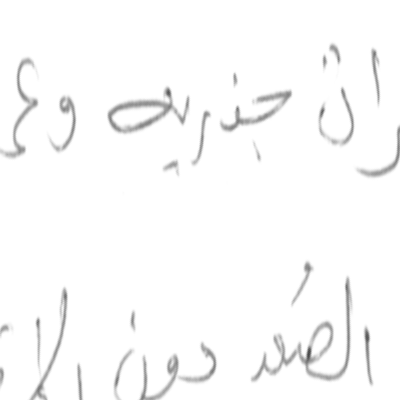 رات جذريه و
الصُعد دون الا